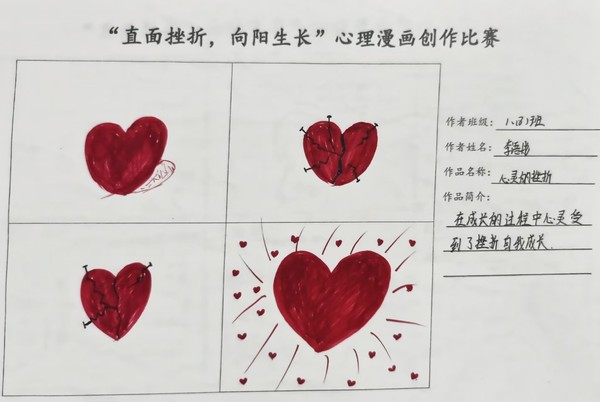 “直面挫折，向阳生长”心理漫画创作比赛
作者班级：
作者姓名：
作品名称：心灵的挫折
作品简介：
在成长的过程中心灵受
到了挫折自我成长.